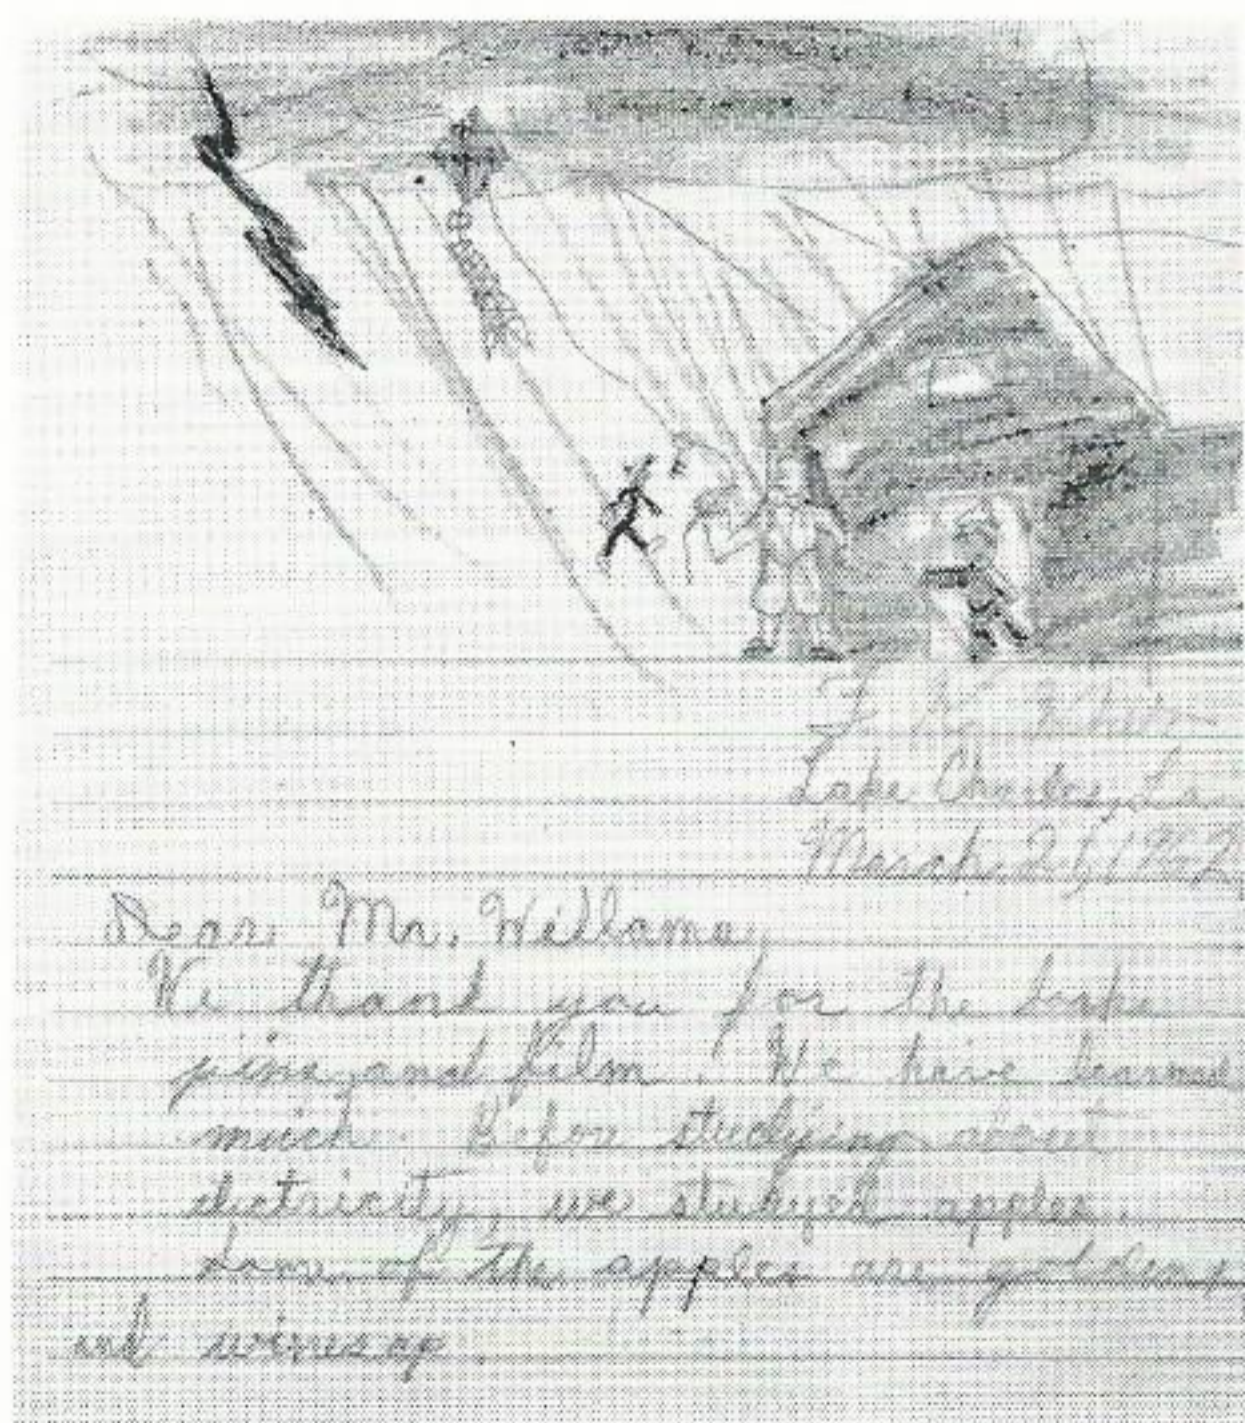 Lake Charles, La
March 2
Dear Mr. Willams,
We thank you for the
pins, and film. We have learned
much. Before studying about
electricity, we studyed apples.
Some of the apples are goldens,
and winesap